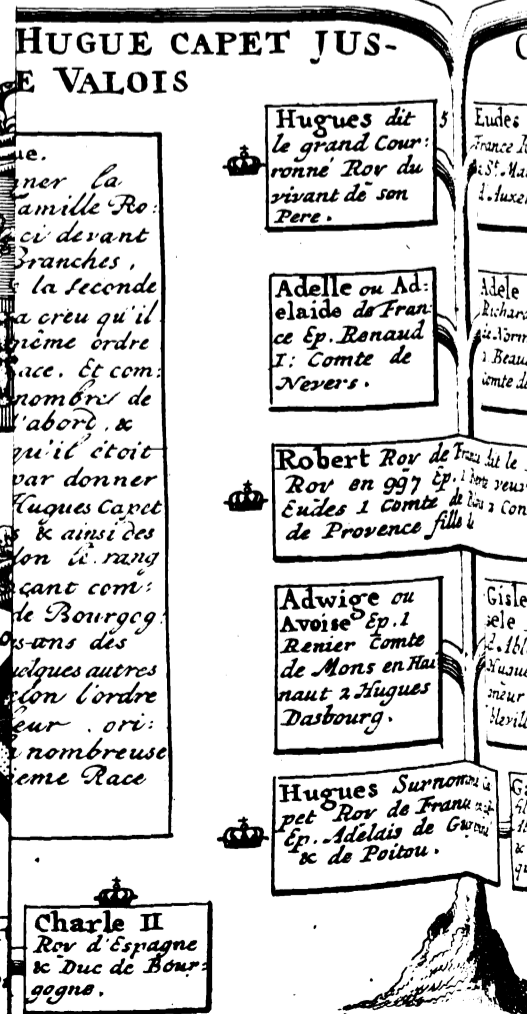 HUGUE CAPET JUS-
E VALOIS
ue.
ner la
amille Ro:
ci devant
Branches,
la seconde
a creu qu'il
même ordre
ace. Et com:
nombre de
l'abord, &
qu'il étoit
par donner
Hugues Capet
& ainsi des
lon le rang
çant com:
de Bourgog:
s-uns des
uelques autres
elon l'ordre
eur ori:
nombreuse
ieme Race
Charle II
Roy d'Espagne
& Duc de Bour:
gogne.
Hugues dit
le grand Cour:
ronné Roy du
vivant de son
Pere.
5
Adelle ou Ad:
elaide de Fran
ce Ep. Renaud
I: Comte de
Nevers.
Robert Roy de dit le
Roy en 997 Ep. 1 veuv
Eudes 1 Comte de 2 Con
de Provence fille
Adwige ou
Avoise Ep. 1
Renier Comte
de Mons en Hai
naut 2 Hugues
Dasbourg.
Hugues Surnommé
pet Roy de France
Ep. Adelais de
& de Poitou.
Eudes
France
St. Ma
Auxer
Adele
Richard
Norm
Beau
Comte de
Gisle
sele
Hugue
neur